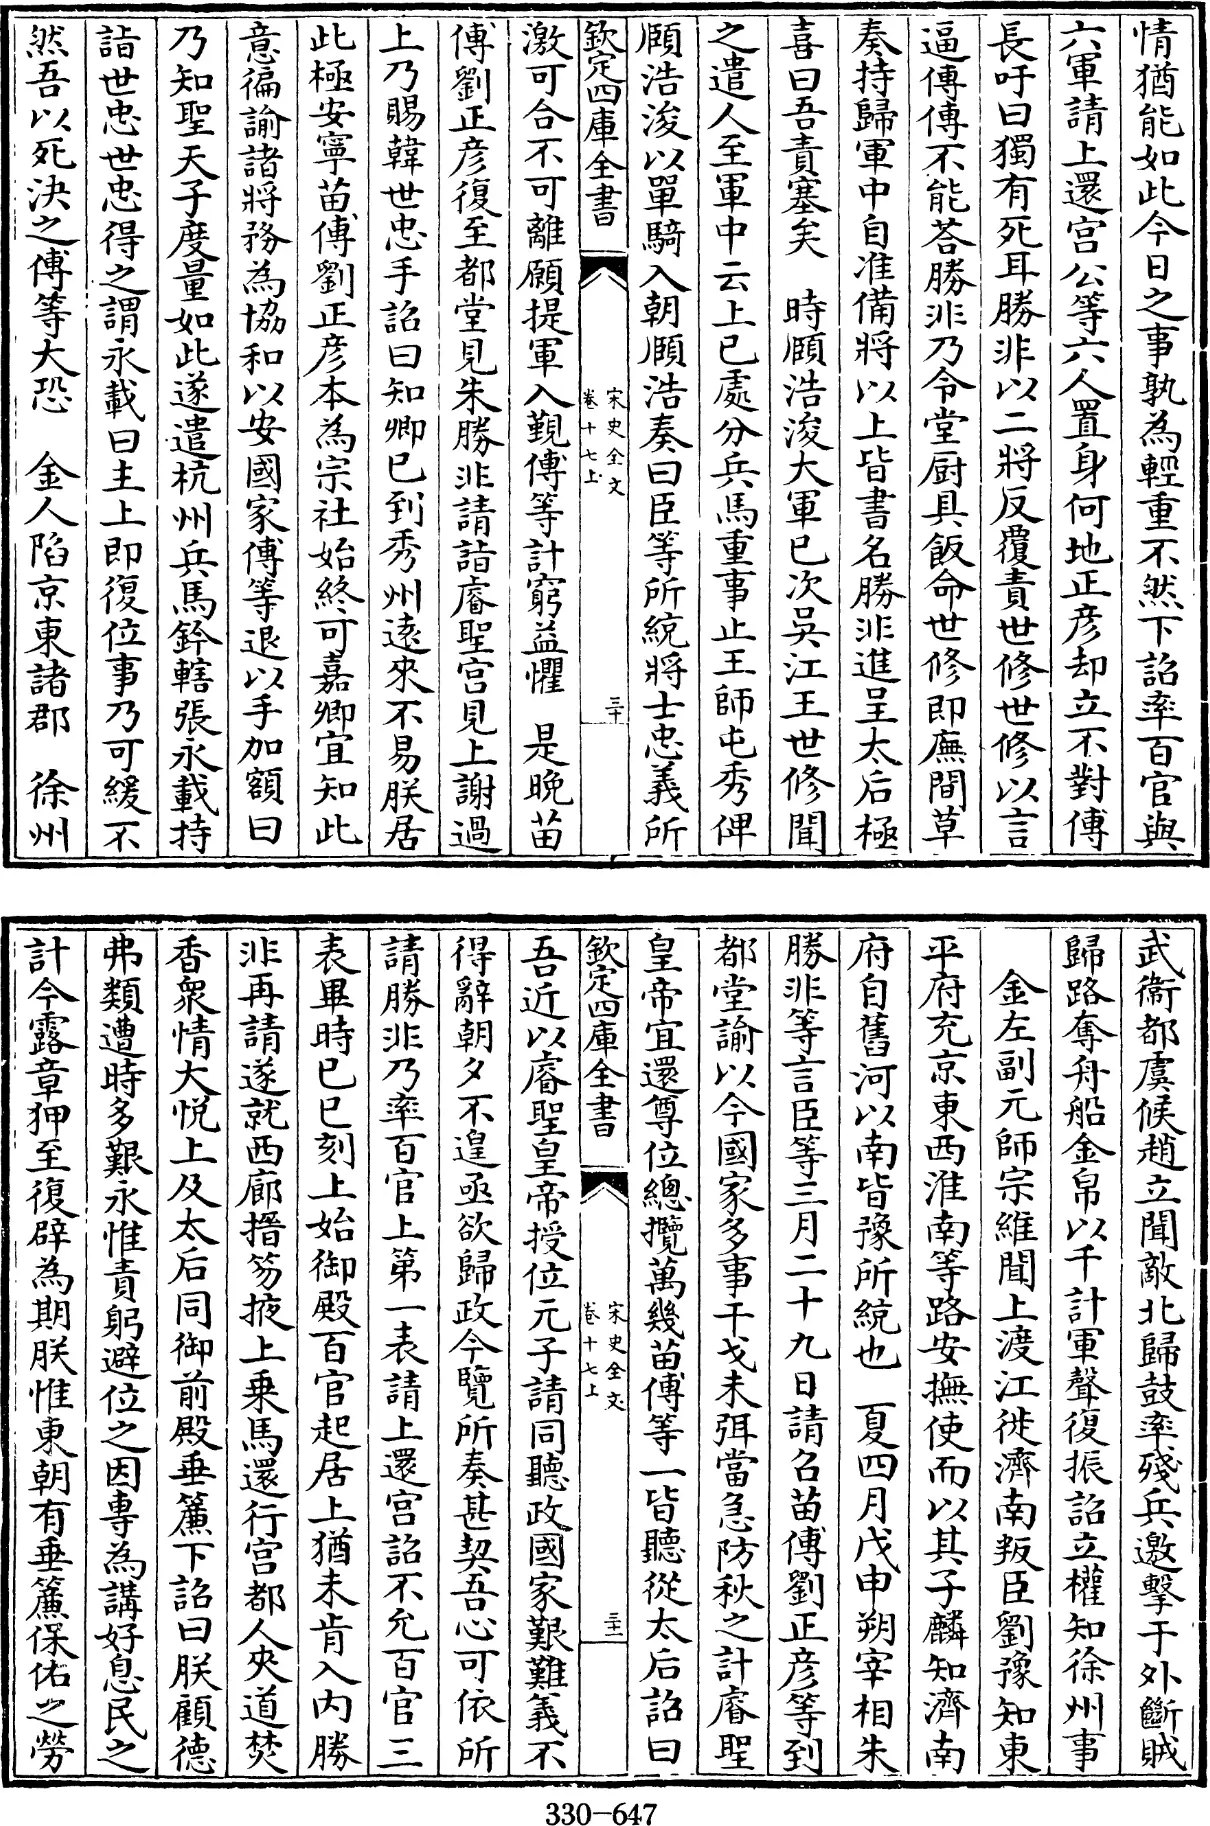 情猶能如此今日之事孰為輕重不然下詔率百官與
六軍請上還宫公等六人置身何地正彦却立不對傅
長吁曰獨有死耳勝非以二將反覆責世修世修以言
逼傅傅不能荅勝非乃令堂厨具飯命世修即廡間草
奏持歸軍中自准備將以上皆書名勝非進呈太后極
喜曰吾責塞矣　時頤浩浚大軍已次吳江王世修聞
之遣人至軍中云上已處分兵馬重事止王師屯秀俾
頤浩浚以單騎入朝頤浩奏曰臣等所統將士忠義所
欽定四庫全書　宋史全文　卷十七上　三十
激可合不可離願提軍入覲傅等計窮益懼　是晚苗
傅劉正彦復至都堂見朱勝非請詣睿聖宫見上謝過
上乃賜韓世忠手詔曰知卿已到秀州逺來不易朕居
此極安寧苗傅劉正彦本為宗社始終可嘉卿宜知此
意徧諭諸將務為協和以安國家傅等退以手加額曰
乃知聖天子度量如此遂遣杭州兵馬鈐轄張永載持
詣世忠世忠得之謂永載曰主上即復位事乃可緩不
然吾以死決之傅等大恐　金人陷京東諸郡　徐州
武衞都虞候趙立聞敵北歸鼓率殘兵邀擊于外斷賊
歸路奪舟船金帛以千計軍聲復振詔立權知徐州事
金左副元師宗維聞上渡江徙濟南叛臣劉豫知東
平府充京東西淮南等路安撫使而以其子麟知濟南
府自舊河以南皆豫所統也　夏四月戊申朔宰相朱
勝非等言臣等三月二十九日請召苗傅劉正彦等到
都堂諭以今國家多事干戈未弭當急防秋之計睿聖
皇帝宜還尊位總攬萬幾苗傅等一皆聽從太后詔曰
欽定四庫全書　宋史全文　卷十七上　三十一
吾近以睿聖皇帝授位元子請同聽政國家艱難義不
得辭朝夕不遑亟欲歸政今覽所奏甚契吾心可依所
請勝非乃率百官上第一表請上還宫詔不允百官三
表畢時已巳刻上始御殿百官起居上猶未肯入内勝
非再請遂就西廊搢笏掖上乗馬還行宫都人夾道焚
香衆情大悦上及太后同御前殿垂簾下詔曰朕顧德
弗類遭時多艱永惟責躬避位之因專為講好息民之
計今露章狎至復辟為期朕惟東朝有垂簾保佑之勞
330-647